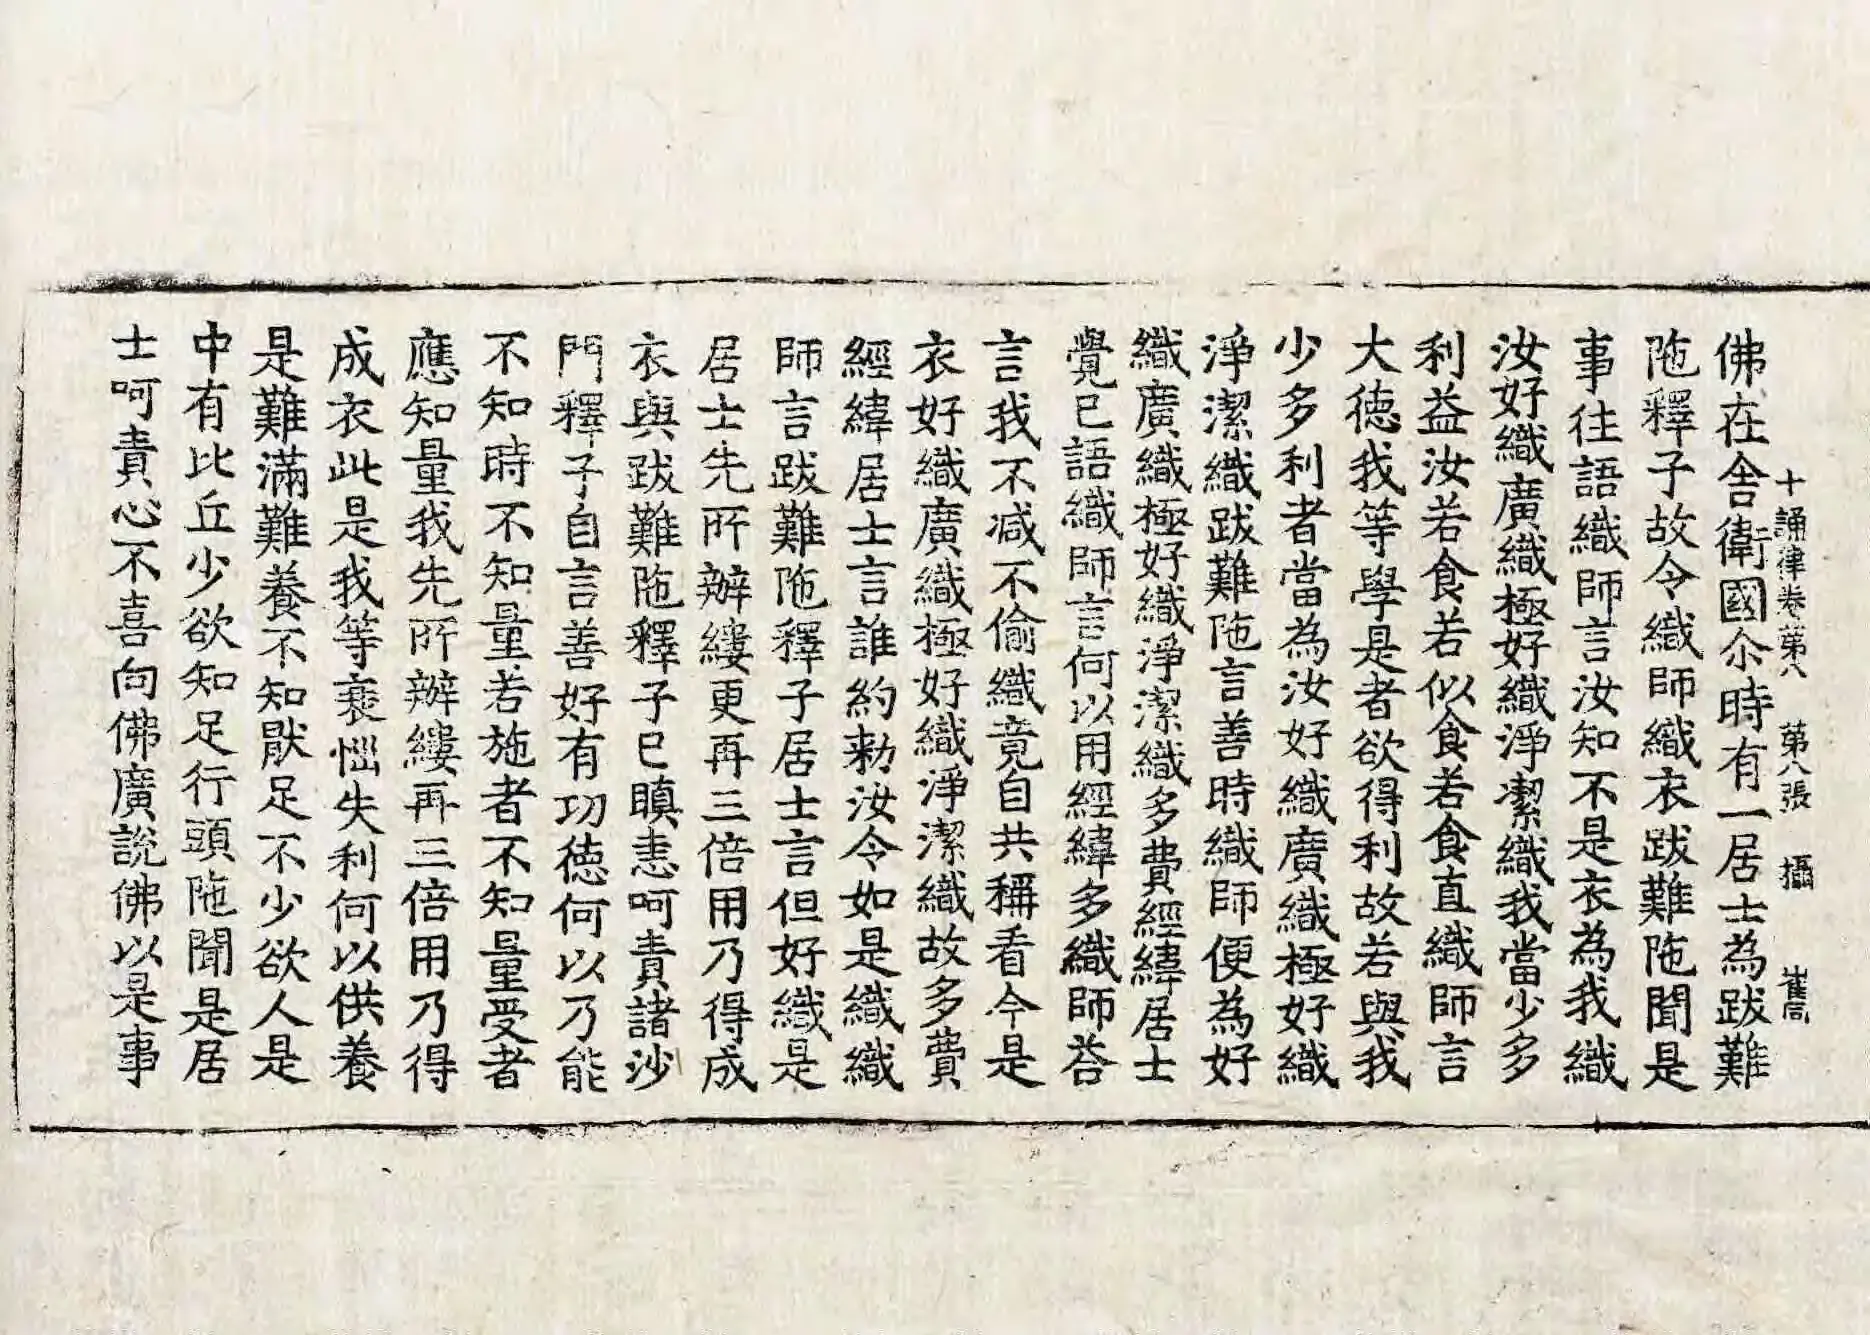 十誦律卷第八　第八張　攝　崔同
佛在舍衛國尒時有一居士為跋難
陁釋子故令織師織衣跋難陁聞是
事往語織師言汝知不是衣為我織
汝好織廣織極好織淨潔織我當少多
利益汝若食若似食若食直織師言
大德我等學是者欲得利故若與我
少多利者當為汝好織廣織極好織
淨潔織跋難陁言善時織師便為好
織廣織極好織淨潔織多費經緯居士
覺已語織師言何以用經緯多織師荅
言我不減不偷織竟自共稱看今是
衣好織廣織極好織淨潔織故多費
經緯居士言誰約勑汝令如是織織
師言跋難陁釋子居士言但好織是
居士先所辦縷更再三倍用乃得成
衣與跋難陁釋子已瞋恚呵責諸沙
門釋子自言善好有功德何以乃能
不知時不知量若施者不知量受者
應知量我先所辦縷再三倍用乃得
成衣此是我等衰惱失利何以供養
是難滿難養不知猒足不少欲人是
中有比丘少欲知足行頭陁聞是居
士呵責心不喜向佛廣說佛以是事